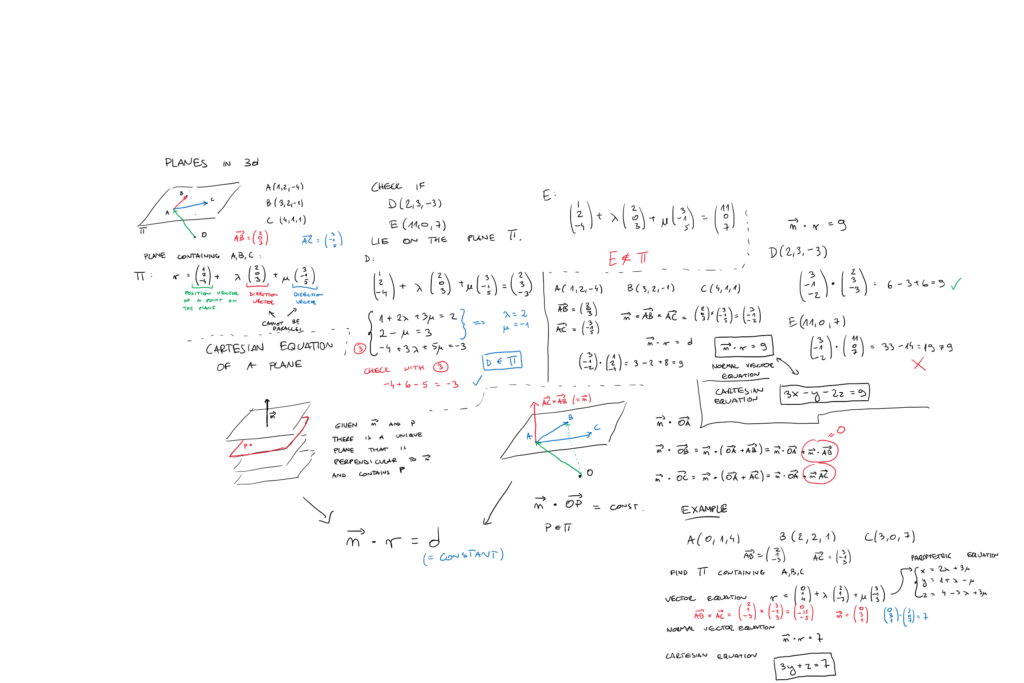 PLANES IN 3d
A(1,2,-4)
B(3,2,-1)
C (4,1,1)
B
A
C
O
π
AB⃗ = (2 0 3)
AC⃗ = (3 -1 5)
PLANE CONTAINING A,B,C :
Π : r = (1 2 -4) + λ (2 0 3) + μ (3 -1 5)
POSITION VECTOR OF A POINT ON THE PLANE
DIRECTION VECTOR
DIRECTION VECTOR
CANNOT BE PARALLEL
CHECK IF
D(2,3,-3)
E(11,0,7)
LIE ON THE PLANE Π.
D:
(1 2 -4) + λ (2 0 3) + μ (3 -1 5) = (2 3 -3)
1 + 2λ + 3μ = 2
2 - μ = 3
③ -4 + 3λ + 5μ = -3
=> λ = 2
μ = -1
CHECK WITH ③
-4 + 6 - 5 = -3 ✓
D ∈ Π
E:
(1 2 -4) + λ (2 0 3) + μ (3 -1 5) = (11 0 7)
E ∉ Π
CARTESIAN EQUATION
OF A PLANE
A(1,2,-4) B(3,2,-1) C(4,1,1)
AB⃗ = (2 0 3)
AC⃗ = (3 -1 5)
n⃗ = AB⃗ × AC⃗ = (2 0 3) × (3 -1 5) = (3 -1 -2)
n⃗ · r = d
(3 -1 -2) · (1 2 -4) = 3 - 2 + 8 = 9
n⃗ · r = 9
NORMAL VECTOR
EQUATION
CARTESIAN
EQUATION
3x - y - 2z = 9
n⃗ · r = 9
D(2,3,-3)
(3 -1 -2) · (2 3 -3) = 6 - 3 + 6 = 9 ✓
E(11,0,7)
(3 -1 -2) · (11 0 7) = 33 - 14 = 19 ≠ 9
n⃗
P
GIVEN n⃗ AND P
THERE IS A UNIQUE
PLANE THAT IS
PERPENDICULAR TO n⃗
AND CONTAINS P
AC⃗ × AB⃗ (= n⃗)
A
B
C
O
n⃗ · OP⃗ = CONST.
P ∈ Π
n⃗ · r = d
(= CONSTANT)
n⃗ · OA⃗
n⃗ · OB⃗ = n⃗ · (OA⃗ + AB⃗) = n⃗ · OA⃗ + n⃗ · AB⃗
= 0
n⃗ · OC⃗ = n⃗ · (OA⃗ + AC⃗) = n⃗ · OA⃗ + n⃗ · AC⃗
EXAMPLE
A(0,1,4) B(2,2,1) C(3,0,7)
AB⃗ = (2 1 -3) AC⃗ = (3 -1 3)
FIND Π CONTAINING A,B,C
VECTOR EQUATION r = (0 1 4) + λ (2 1 -3) + μ (3 -1 3)
PARAMETRIC EQUATION
x = 2λ + 3μ
y = 1 + λ - μ
z = 4 - 3λ + 3μ
AB⃗ × AC⃗ = (2 1 -3) × (3 -1 3) = (0 -15 -5) n⃗ = (0 3 1)
NORMAL VECTOR EQUATION
n⃗ · r = 7
CARTESIAN EQUATION
3y + z = 7